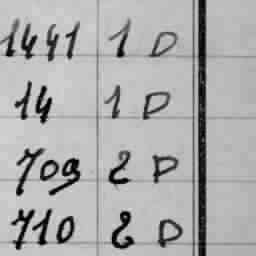 1441 1 D
14 1 D
709 2 P
710 2 D